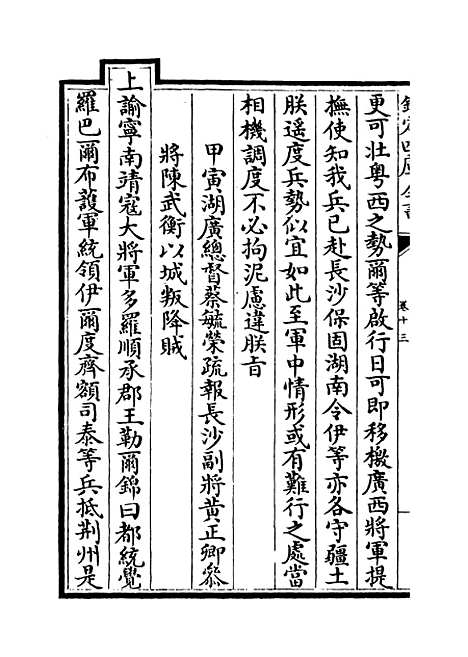 欽定四庫全書
卷十三
更可壯粤西之勢爾等啟行日可即移檄廣西將軍提
撫使知我兵已赴長沙保固湖南令伊等亦各守疆土
朕遥度兵勢似宜如此至軍中情形或有難行之處當
相機調度不必拘泥慮違朕㫖
甲寅湖廣總督蔡毓榮疏報長沙副將黄正卿叅
將陳武衡以城叛降賊
上諭寧南靖寇大將軍多羅順承郡王勒爾錦曰都統覺
羅巴爾布護軍統領伊爾度齊額司泰等兵抵荆州是